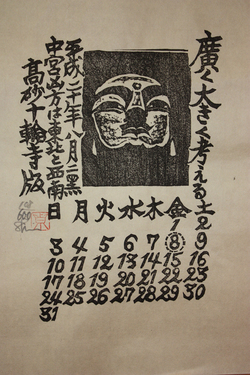 廣く大きく考える
平成二十年八月二黒
中宮凶方は東北と西南
高砂十輪寺版
日 月 火 水 木 金 土
1 2
3 4 5 6 7 8 9
10 11 12 13 14 15 16
17 18 19 20 21 22 23
24 25 26 27 28 29 30
31